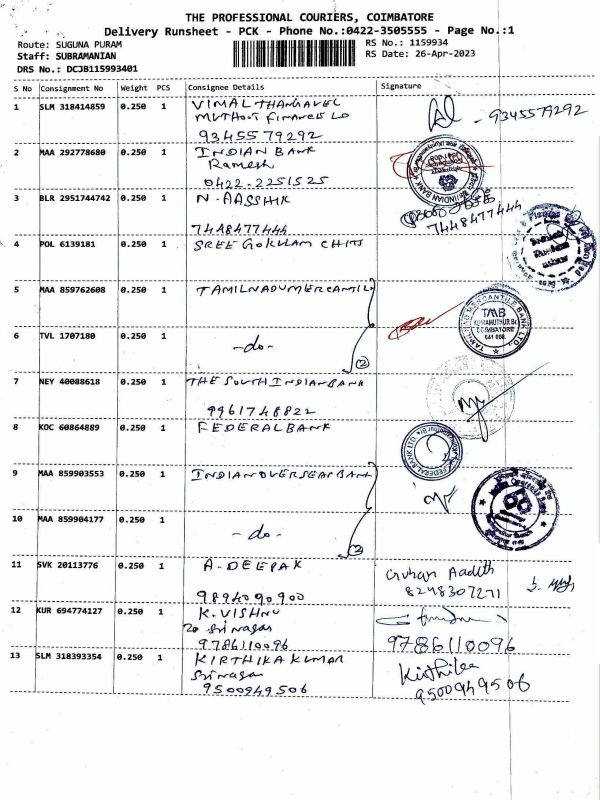 THE PROFESSIONAL COURIERS, COIMBATORE
Delivery Runsheet - PCK - Phone No.:0422-3505555 - Page No.:1
Route: SUGUNA PURAM
RS No.: 1159934
Staff: SUBRAMANIAN
RS Date: 26-Apr-2023
DRS No.: DCJB115993401
S No Consignment No Weight PCS Consignee Details Signature
1 SLM 318414859 0.250 1 VIMAL THANGAVEL
MUTHOOT FINANCE LD
9345579292
- 9345579292
2 MAA 292778680 0.250 1 INDIAN BANK
Ramesh
0422-2251525
INDIAN BANK
3 BLR 2951744742 0.250 1 N-AASSHIK
7448477444
7448477444
4 POL 6139181 0.250 1 SREE GOKULAM CHITS
5 MAA 859762608 0.250 1 TAMILNADUMERCANTIL
TAMILNAD MERCANTILE BANK LTD.
TMB
COIMBATORE
6 TVL 1707180 0.250 1 -do-
(2)
7 NEY 40088618 0.250 1 THE SOUTH INDIAN BANK
9961748822
8 KOC 60864889 0.250 1 FEDERAL BANK
FEDERAL BANK LTD.
9 MAA 859903553 0.250 1 INDIAN OVERSEAR BANK
10 MAA 859904177 0.250 1 -do-
(2)
11 SVK 20113776 0.250 1 A-DEEPAK
9894090900
Guhan Aadith
8248307271
12 KUR 694774127 0.250 1 K.VISHNU
20 Srinagar
9786110096
9786110096
13 SLM 318393354 0.250 1 KIRTHIKA KUMAR
Srinagar
9500949506
Kirthika
9500949506